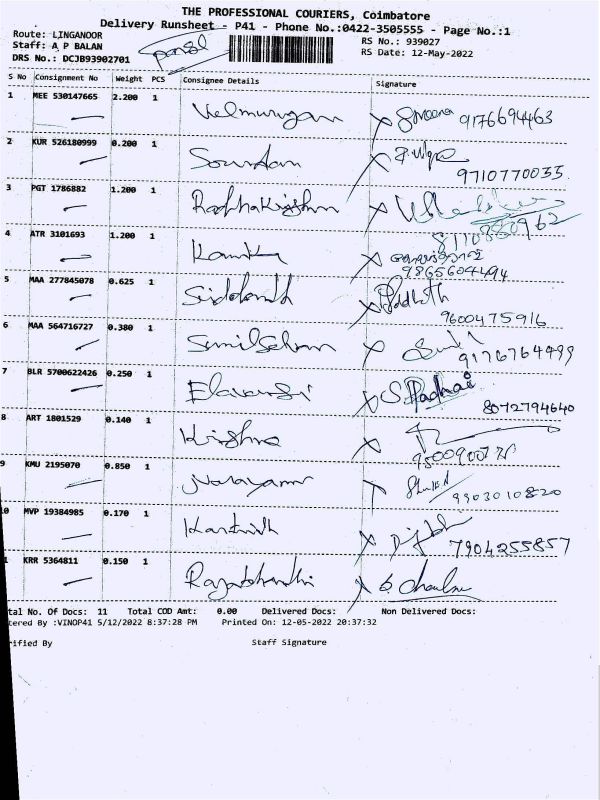 THE PROFESSIONAL COURIERS, Coimbatore
Delivery Runsheet - P41 - Phone No.:0422-3505555 - Page No.:1
Route: LINGANOOR
RS No.: 939027
Staff: A P BALAN
RS Date: 12-May-2022
DRS No.: DCJB93902701
S No Consignment No Weight PCS Consignee Details Signature
1 MEE 530147665 2.200 1 Velmurugan 9176694463
2 KUR 526180999 0.200 1 Soundan 9710770035
3 PGT 1786882 1.200 1 Radhakrishnan 8110880962
4 ATR 3101693 1.200 1 9865604494
5 MAA 277845078 0.625 1 Siddharth 9600475916
6 MAA 564716727 0.380 1 9176764499
7 BLR 5700622426 0.250 1 8072794640
8 ART 1801529 0.140 1 Krishna
9 KMU 2195070 0.850 1 Narayanan 9903010820
0 MVP 19384985 0.170 1 Karthik 7904255857
1 KRR 5364811 0.150 1
tal No. Of Docs: 11 Total COD Amt: 0.00 Delivered Docs: Non Delivered Docs:
tered By :VINOP41 5/12/2022 8:37:28 PM Printed On: 12-05-2022 20:37:32
rified By Staff Signature